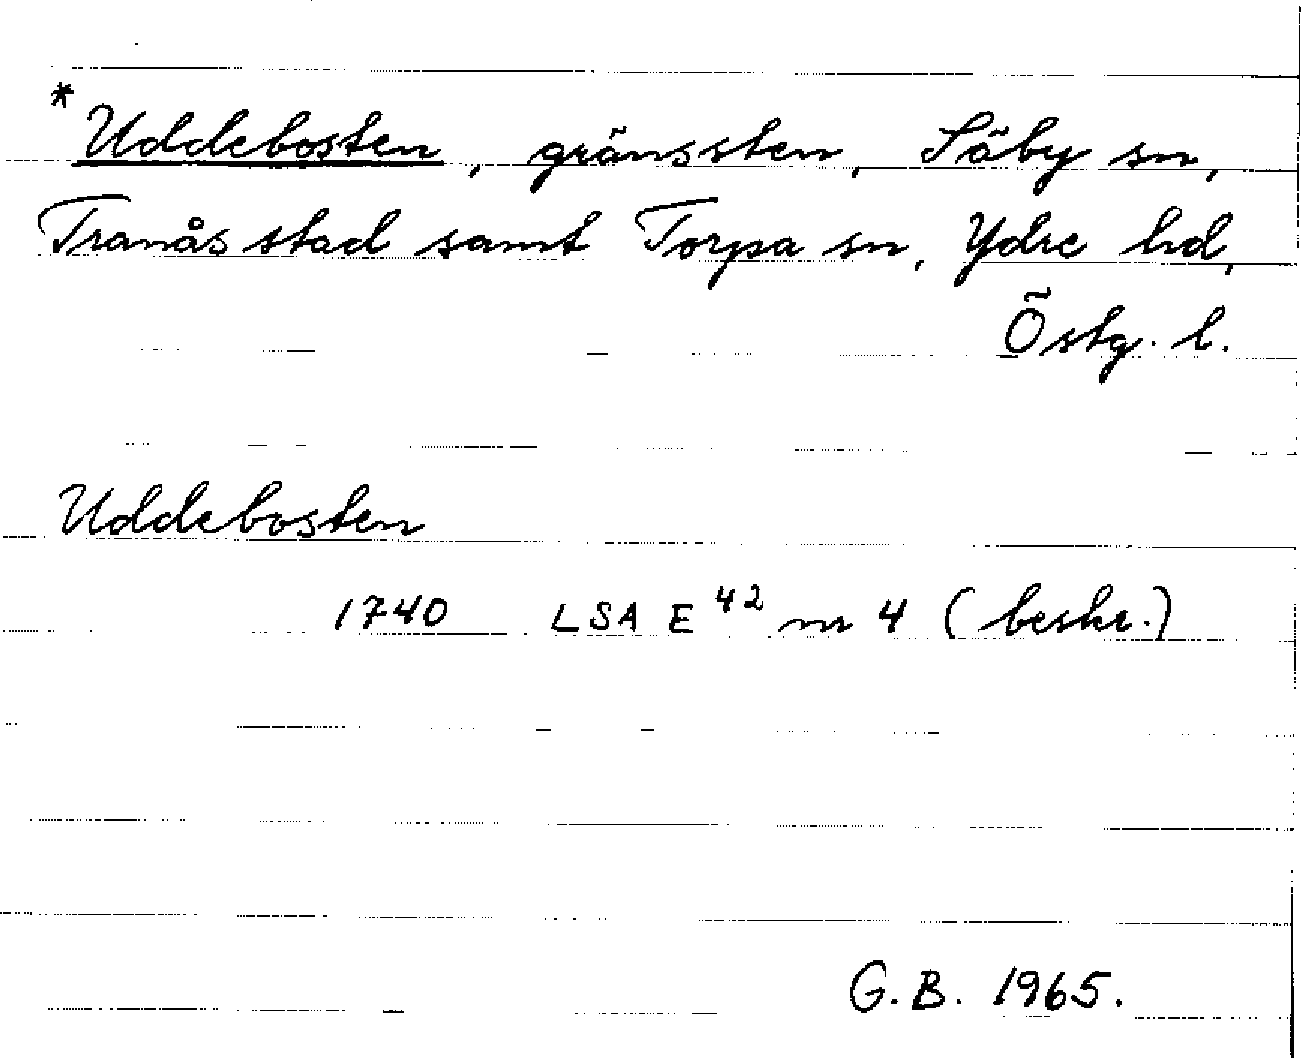 *Uddebosten, gränssten, Säby sn,
Tranås stad samt Torpa sn, Ydre hd,
Östg. l.
Uddebosten
1740 LSA E 42 nr 4 (beskr.)
G.B. 1965.